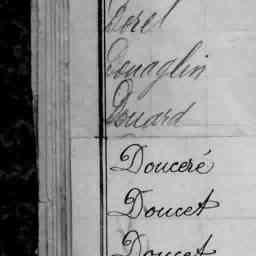 Dorel
Douaglin
Douard
Douceré
Doucet
Doucet